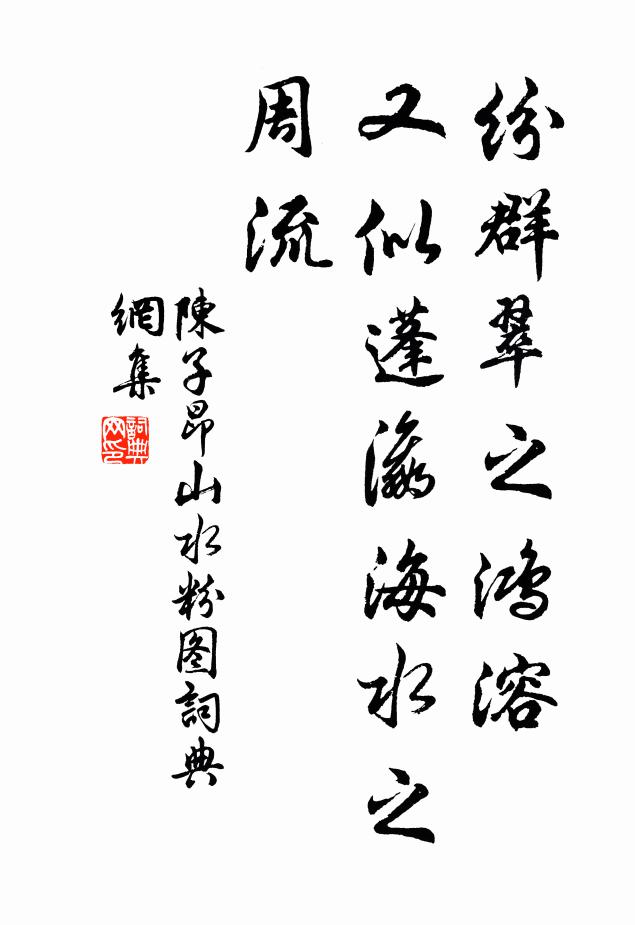 纷群翠之鸿溶
又似蓬瀛海水之
周流
陳子昂山水粉图詞典
網集
詞典
网印